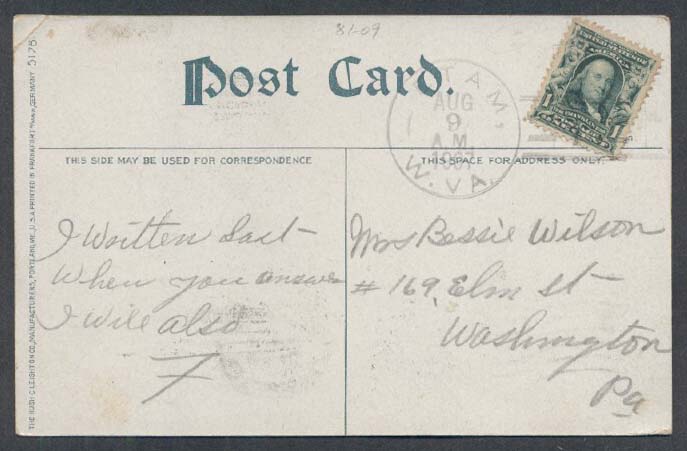 81-09
Post Card.
TAM,
AUG
9
A.M.
1907
W. VA.
1 1
THIS SIDE MAY BE USED FOR CORRESPONDENCE
THIS SPACE FOR ADDRESS ONLY.
I Written Last
When you answer
I will also
F
Mrs Bessie Wilson
# 169 Elm st
Washington
Pa
THE HUGH C. LEIGHTON CO., MANUFACTURERS, PORTLAND, ME., U.S.A. PRINTED IN FRANKFORT GERMANY 5175